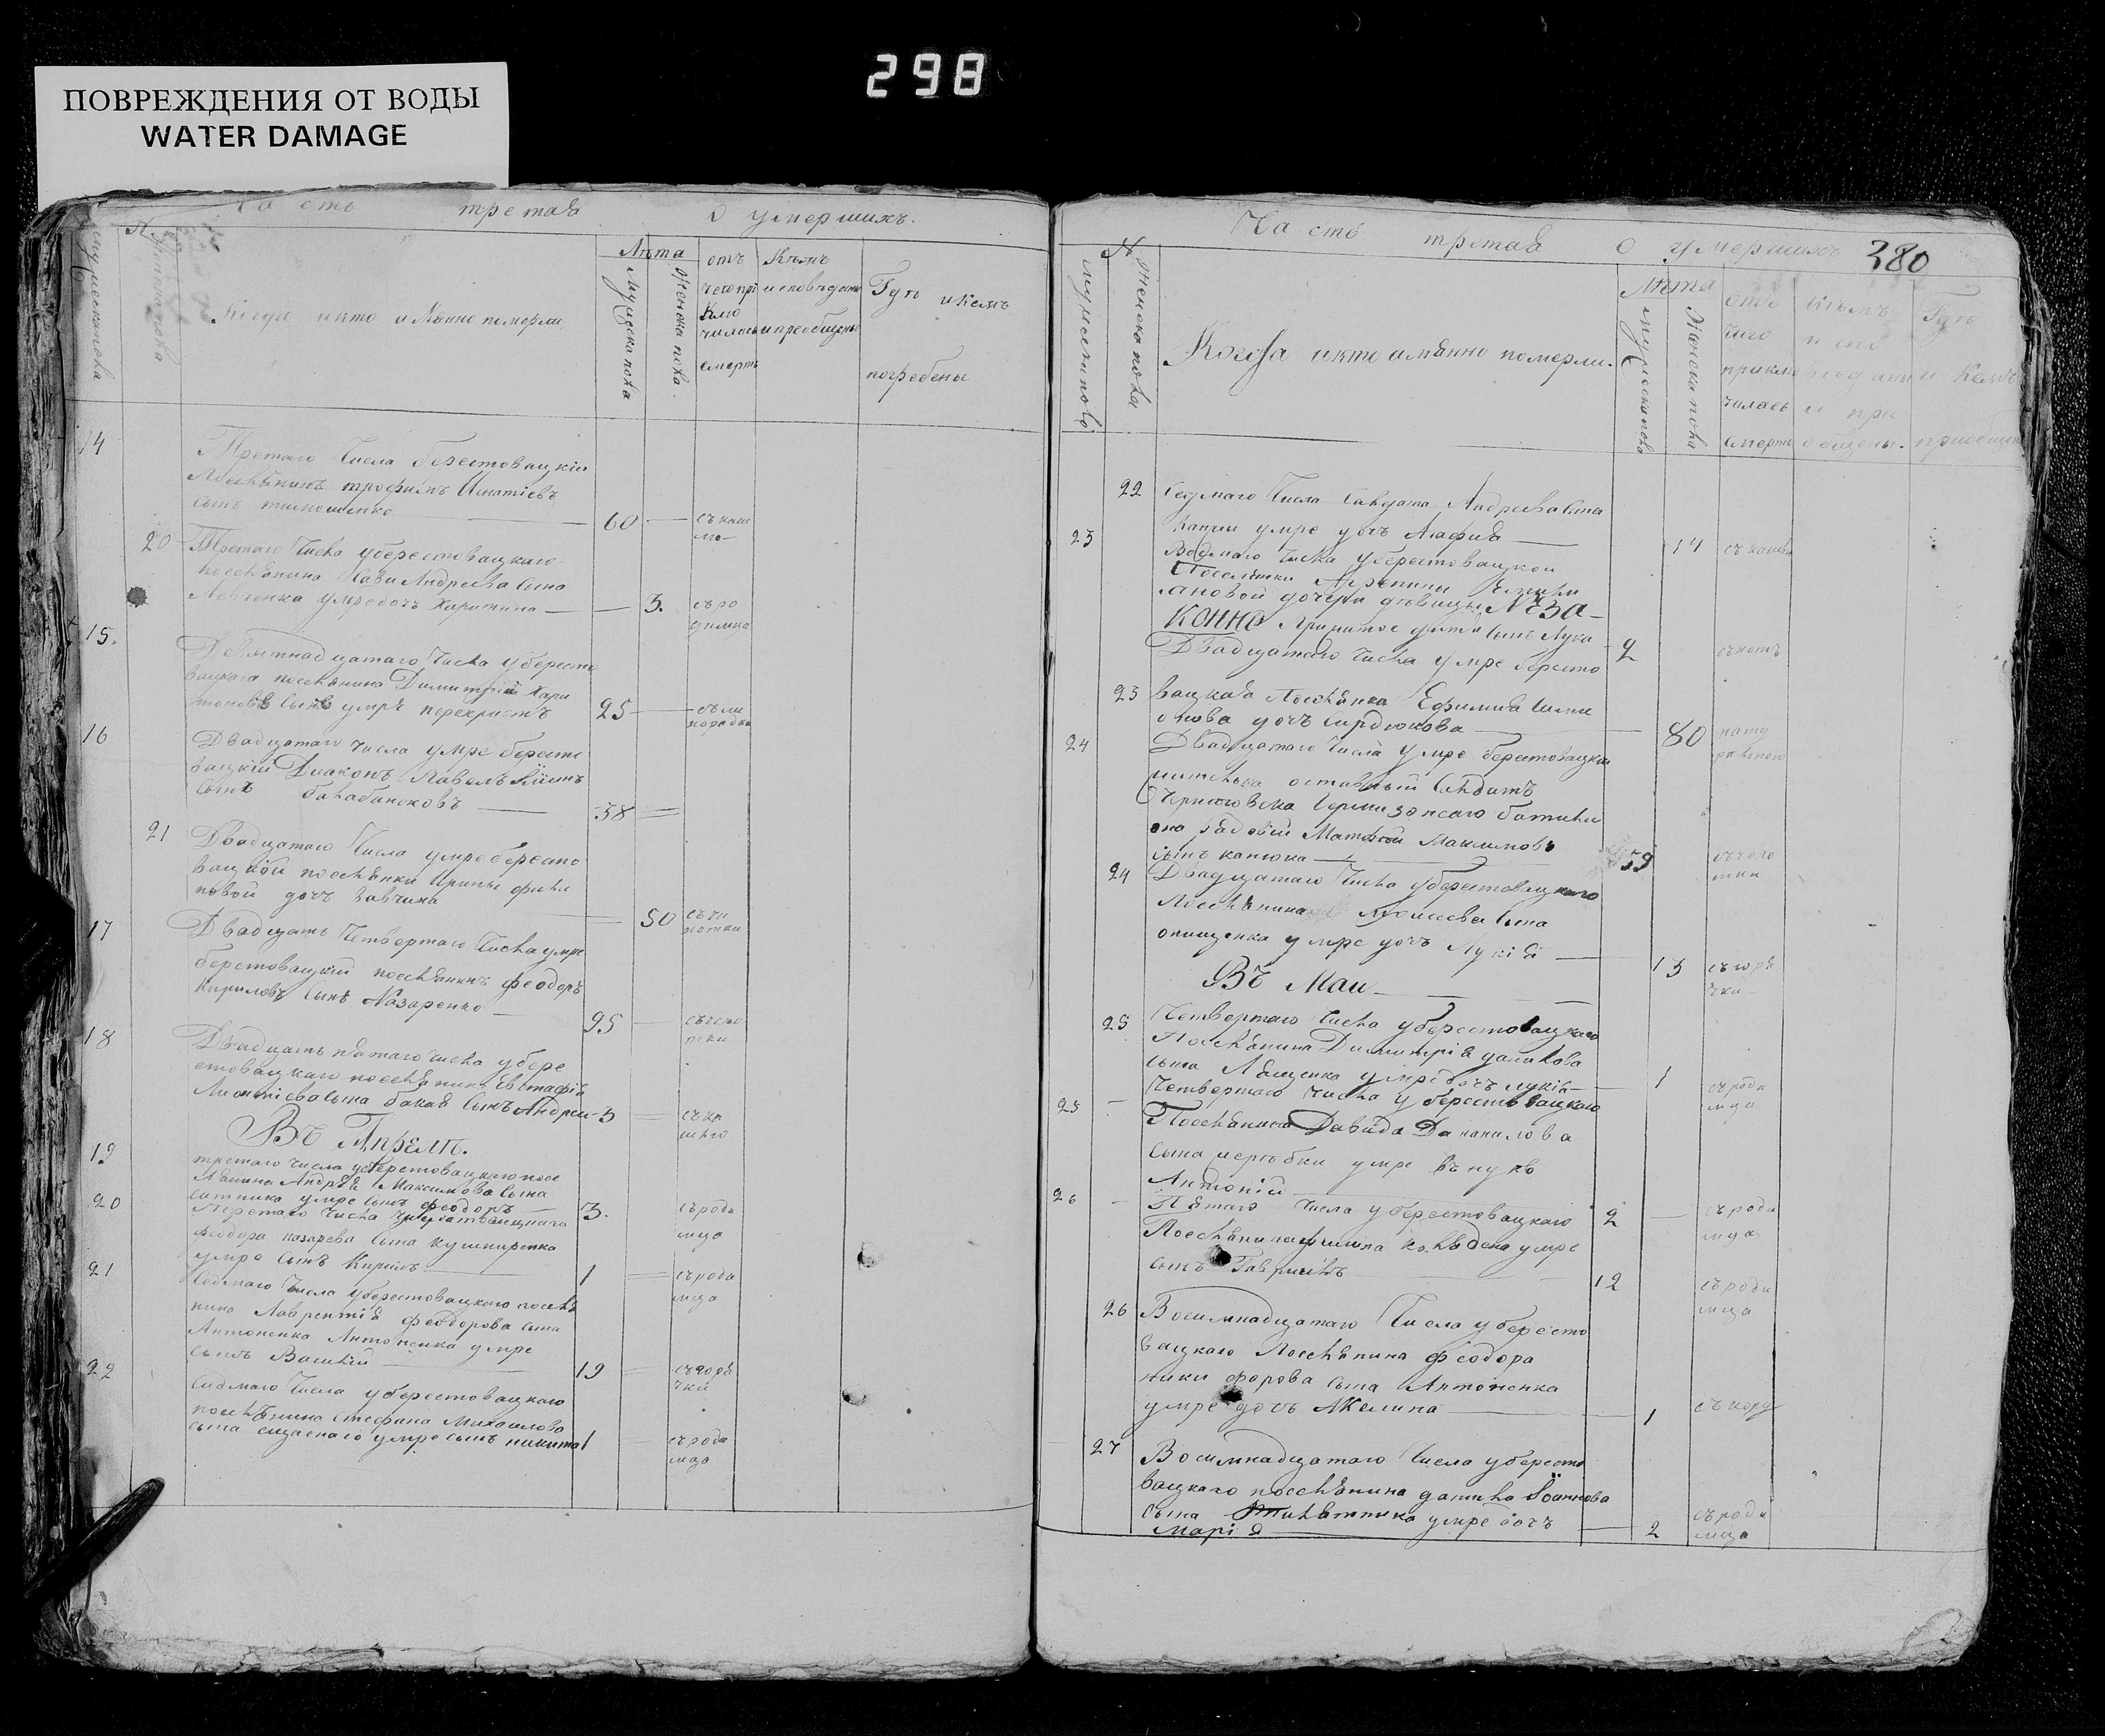 298
ПОВРЕЖДЕНИЯ ОТ ВОДЫ
WATER DAMAGE
Часть третая о умершихъ.
№
мужеска пола
женска пола
Когда и кто имянно померли
Лѣта
Мужеска пола
Женска пола
отъ чего приключилась смерть
Кѣмъ исповѣданы и преобщены
Гдѣ и кемъ погребены
14
Третаго Числа берестовацкій
посѣлянинъ трофимъ Игнатіевъ
сынъ тимошенко 60 съ каш
ле
20
Третаго Числа уберестовацкаго
поселянина Савы Андреева Сына
Левченка умре дочъ Харитина 3. съ ро
димца
15.
Девятнадцатаго Числа убересто
вацкаго поселянина Димитрій Хари
тоновъ Сынъ умре перехристъ 25 съ ли
хорадки
16
Двадцатаго числа умре бересто
вацкій Диаконъ Павелъ
Сынъ балабановъ 38
21
Двадцатаго Числа умре бересто
вацкой поселянки Ирины фили
повой дочъ 50 съ чи
хотки
17
Двадцать Четвертаго Числа умре
берестовацкій поселянинъ феодоръ
Кириловъ Сынъ Назаренко 95 съ чехо
тки
18
Двадцать пятаго числа убере
стовацкаго поселянина Евстафія
Леонтіева сына бакая Сынъ Андрей 3 съ ка
шлю
Въ Апрелѣ.
19
третаго числа уберестовацкаго посе
лянина Андрея Максимова Сына
ситника умре Сынъ феодоръ 3. съ роди
мца
20
Третаго Числа
феодора назарева Сына кушниренка
умре Сынъ Кирилъ 1 съ роди
мца
21
Седмаго Числа уберестовацкаго посел
нина Лаврентія феодорова сына
Антоненка Антоненка умре
Сынъ Василій 19 съ горя
чки
22
Седмаго Числа уберестовацкаго
поселянина Стефана Михаилова
сына сидаснаго умре сынъ никита 1 съ роди
мца
Часть третая о умершихъ 280
№
мужеска пола
Женска пола
Когда и кто имянно померли.
Лѣта
Мужеска пола
Женска пола
отъ чего приключилась смерть
Кѣмъ исповѣданы и приобщены.
Гдѣ и Кемъ приобщены
22
Седмаго Числа Салдата Андреева Сина
умре дочъ Агафия 14 съ кашлю
23
Восмаго Числа уберестовацкой
Поселянки
лановой дочери дѣвицы Неза
конно Прижитое дитя Синъ Лука 2
23
Двадцатаго Числа умре бересто
вацкая Поселянка Ефимия Сими
онова дочъ Сердюкова 80 нату
ралной
24
Двадцатаго Числа умре берестовацки
житель оставный Салдатъ
Чернаговска Гернизонсаго батали
она рядовій Матфей Максимовъ
сынъ канюка 59 съ чехо
тки
24
Двадцатаго Числа уберестовацкаго
Поселянина Моисеева Сына
онищенка умре дочъ Лукія 13 съ горя
чки
Въ Маи
25
Четвертаго Числа уберестовацкаго
Поселянина Димитрія данилова
сына Лященка умре дочъ лукія 1 съ роди
мца
25
Четвертаго Числа уберестовацкаго
Поселянина Давида Даниилова
Сына умре внукъ
Антоній 2 съ роди
мца
26
Пятаго Числа уберестовацкаго
Поселянина филипа умре
сынъ Гавриилъ 12 съ роди
мца
26
Восимнадцатаго Числа убересто
вацкаго Поселянина феодора
никифорова сына Антоненка
умре дочъ Акелина 1 съ кору
27
Восимнадцатаго Числа убересто
вацкаго поселянина данила Іоаннова
Сына умре дочъ
Марія 2 съ роди
мца